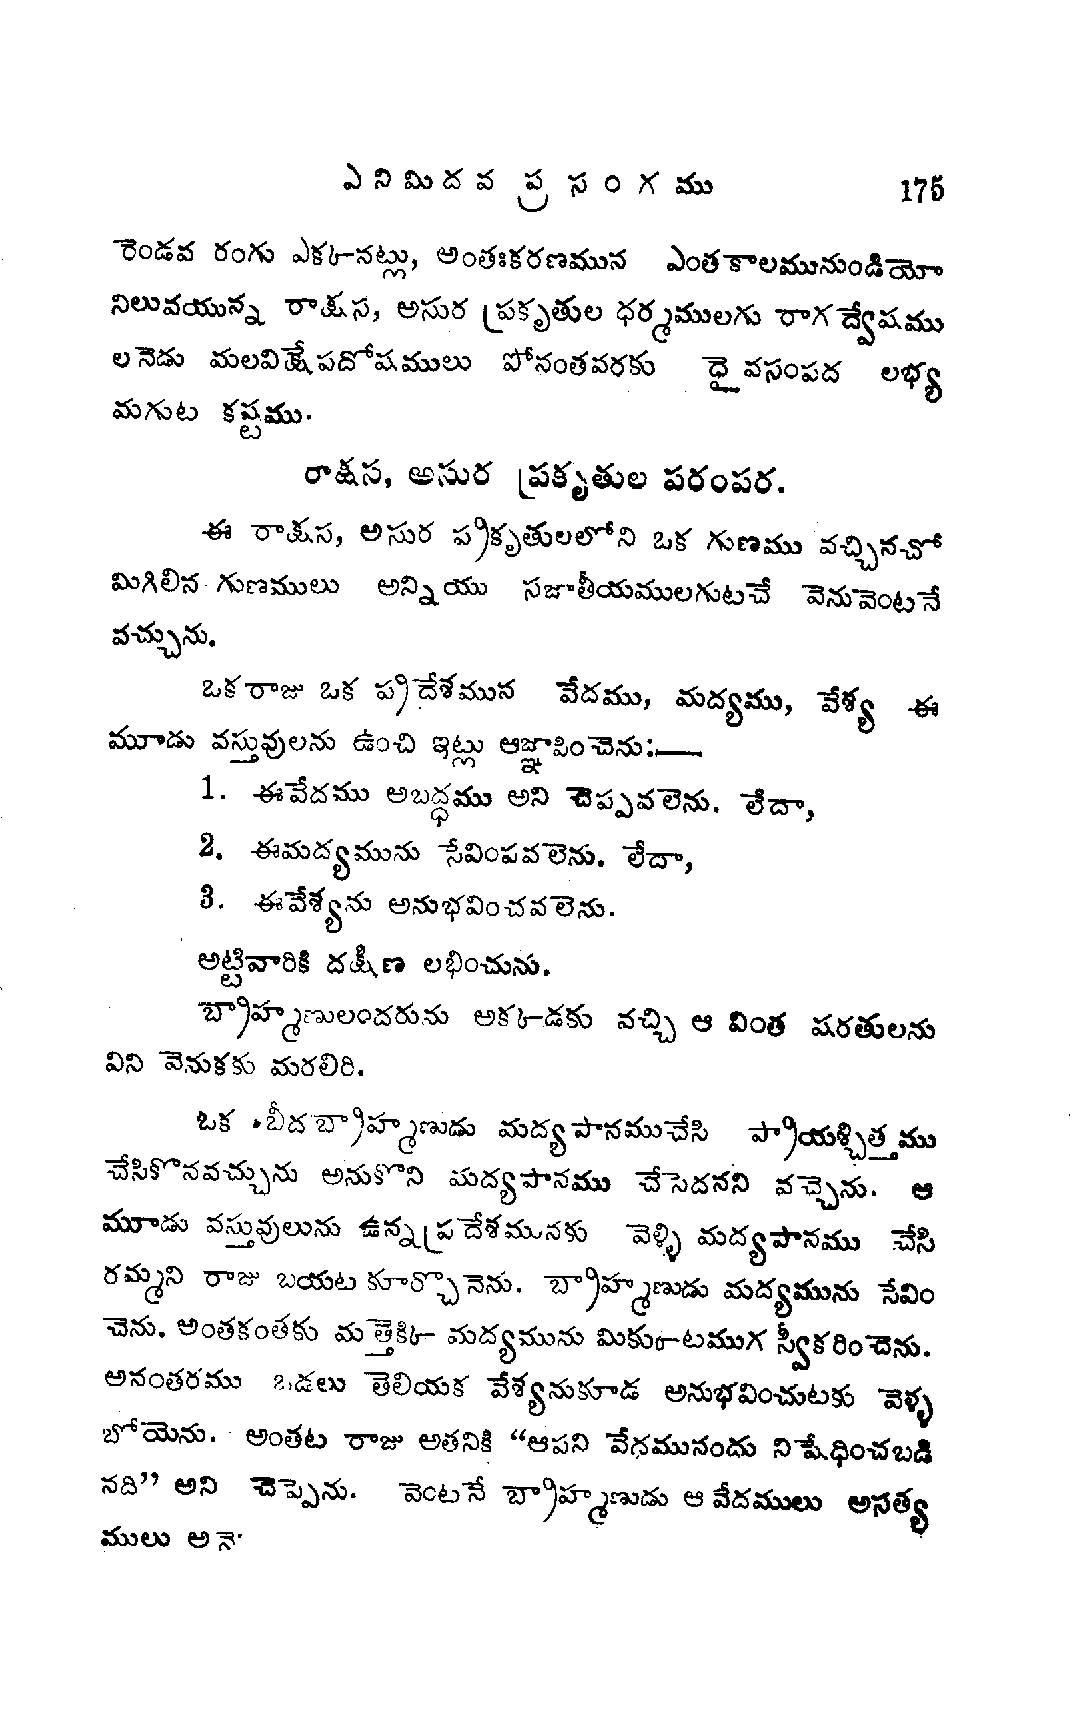 ఎనిమిదవ ప్రసంగము 175
రెండవ రంగు ఎక్కనట్లు, అంతఃకరణమున ఎంతకాలమునుండియో
నిలువయున్న రాక్షస, అసుర ప్రకృతుల ధర్మములగు రాగద్వేషము
లనెడు మలవిక్షేపదోషములు పోనంతవరకు దైవసంపద లభ్య
మగుట కష్టము.
రాక్షస, అసుర ప్రకృతుల పరంపర.
ఈ రాక్షస, అసుర ప్రకృతులలోని ఒక గుణము వచ్చినచో
మిగిలిన గుణములు అన్నియు సజాతీయములగుటచే వెనువెంటనే
వచ్చును.
ఒకరాజు ఒక ప్రదేశమున వేదము, మద్యము, వేశ్య ఈ
మూడు వస్తువులను ఉంచి ఇట్లు ఆజ్ఞాపించెను:—
1. ఈవేదము అబద్ధము అని చెప్పవలెను. లేదా,
2. ఈమద్యమును సేవింపవలెను. లేదా,
3. ఈవేశ్యను అనుభవించవలెను.
అట్టివారికి దక్షిణ లభించును.
బ్రాహ్మణులందరును అక్కడకు వచ్చి ఆ వింత షరతులను
విని వెనుకకు మరలిరి.
ఒక బీదబ్రాహ్మణుడు మద్యపానముచేసి ప్రాయశ్చిత్తము
చేసికొనవచ్చును అనుకొని మద్యపానము చేసెదనని వచ్చెను. ఆ
మూడు వస్తువులును ఉన్న ప్రదేశమునకు వెళ్ళి మద్యపానము చేసి
రమ్మని రాజు బయట కూర్చొనెను. బ్రాహ్మణుడు మద్యమును సేవిం
చెను. అంతకంతకు మత్తెక్కి మద్యమును మిక్కుటముగ స్వీకరించెను.
అనంతరము ఒడలు తెలియక వేశ్యనుకూడ అనుభవించుటకు వెళ్ళ
బోయెను. అంతట రాజు అతనికి “ఆపని వేదమునందు నిషేధించబడి
నది” అని చెప్పెను. వెంటనే బ్రాహ్మణుడు ఆ వేదములు అసత్య
ములు అనె